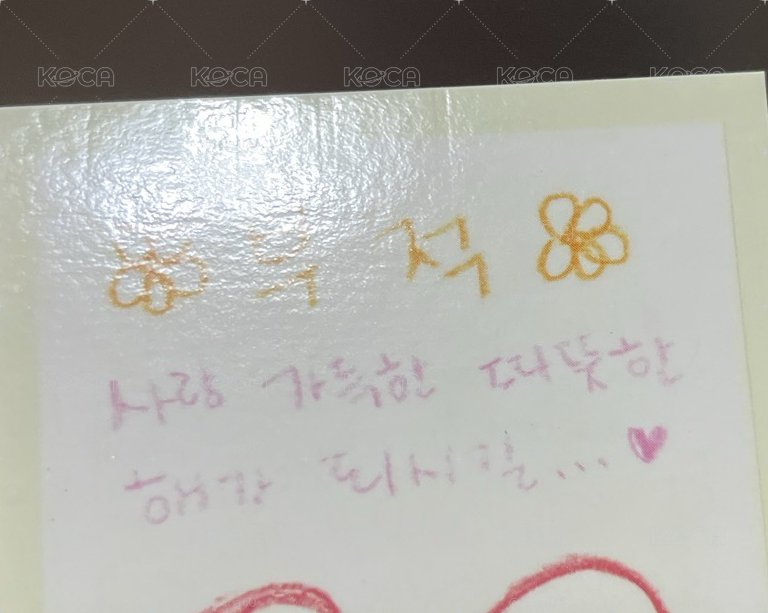 KOCA KOCA KOCA KOCA KOCA
부적
사랑 가득한 따뜻한
행강 되시길...